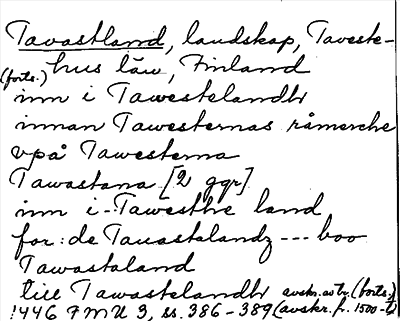 Tavastland, landskap, Taveste-
(forts.) hus län, Finland
inn i Tawestelandh
innan Tawesternas råmerche
vpå Tawesterna
Tawastana [2 ggr]
inn i Tawesthe land
for: de Tauastalandz --- boo
Tawastaland
till Tawastelandh avskr. av tr. (forts.)
1446 FMU 3, ss. 386-389 (avskr. fr. 1500-t)